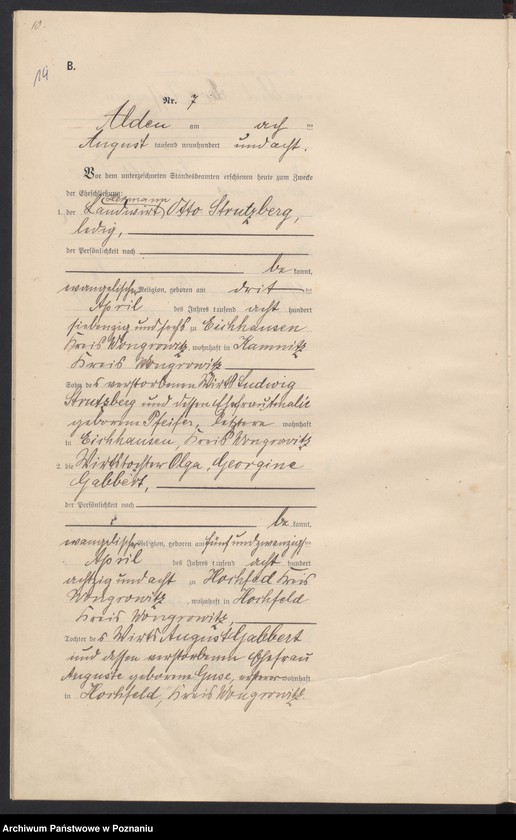 10.
19
B.
Nr. 7
Alden am acht ten
August tausend neunhundert und acht.
Vor dem unterzeichneten Standesbeamten erschienen heute zum Zwecke
der Eheschließung:
1. der Landwirt Otto Strutzberg,
ledig,
der Persönlichkeit nach
be kannt,
evangelischer Religion, geboren am dritten
April des Jahres tausend acht hundert
siebenzig und sechs zu Eichhausen
Kreis Wongrowitz, wohnhaft in Kamnitz
Kreis Wongrowitz
Sohn des verstorbenen Wirts Ludwig
Strutzberg und dessen Ehefrau Amalie
geborenen Pfeifer, letztere wohnhaft
in Eichhausen, Kreis Wongrowitz
2. die Wirtstochter Olga, Georgine
Gabbert,
der Persönlichkeit nach
be kannt,
evangelischer Religion, geboren am fünf und zwanzigsten
April des Jahres tausend acht hundert
achtzig und acht zu Hochfeld Kreis
Wongrowitz, wohnhaft in Hochfeld
Kreis Wongrowitz,
Tochter des Wirts August Gabbert
und dessen verstorbenen Ehefrau
Auguste geborene Guse, ersterer wohnhaft
in Hochfeld, Kreis Wongrowitz.
Archiwum Państwowe w Poznaniu
szukajwarchiwach